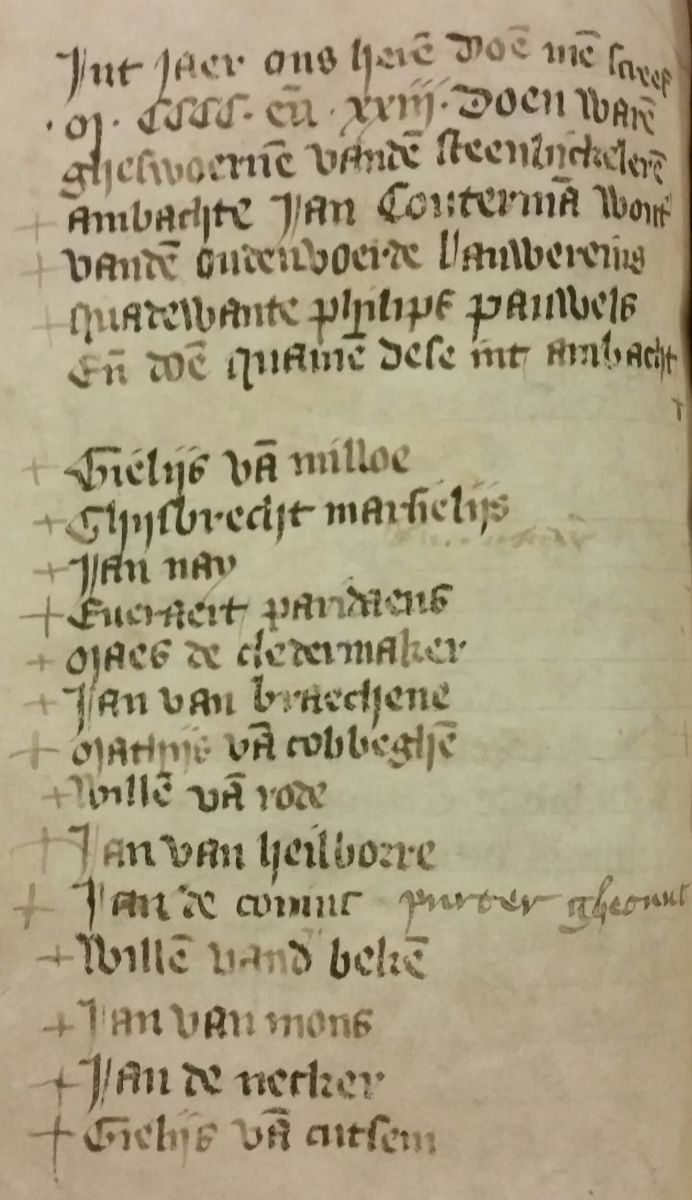 Int jaer ons herē doē mē screef
.M. CCCC. eñ . xxiij . Doen warē
gheswoernē vandē steenbickelerē
+ ambachte Jan Coutermā wout
+ vandē oudenvoerde lauwereins
+ quadewante philips pauwels
Eñ doē quamē dese int ambacht
+ Gielijs vā milloe
+ Ghijsbrecht marsielijs
+ Jan nay
+ Everaert paridaens
+ Maes de cledermaker
+ Jan van braechene
+ Mathijs vā cobbeghē
+ willē vā rode
+ Jan van heilborre
+ Jan de coninc porter
+ Willē vand bekē
+ Jan van mons
+ Jan de necker
+ Gielijs vā cutsem